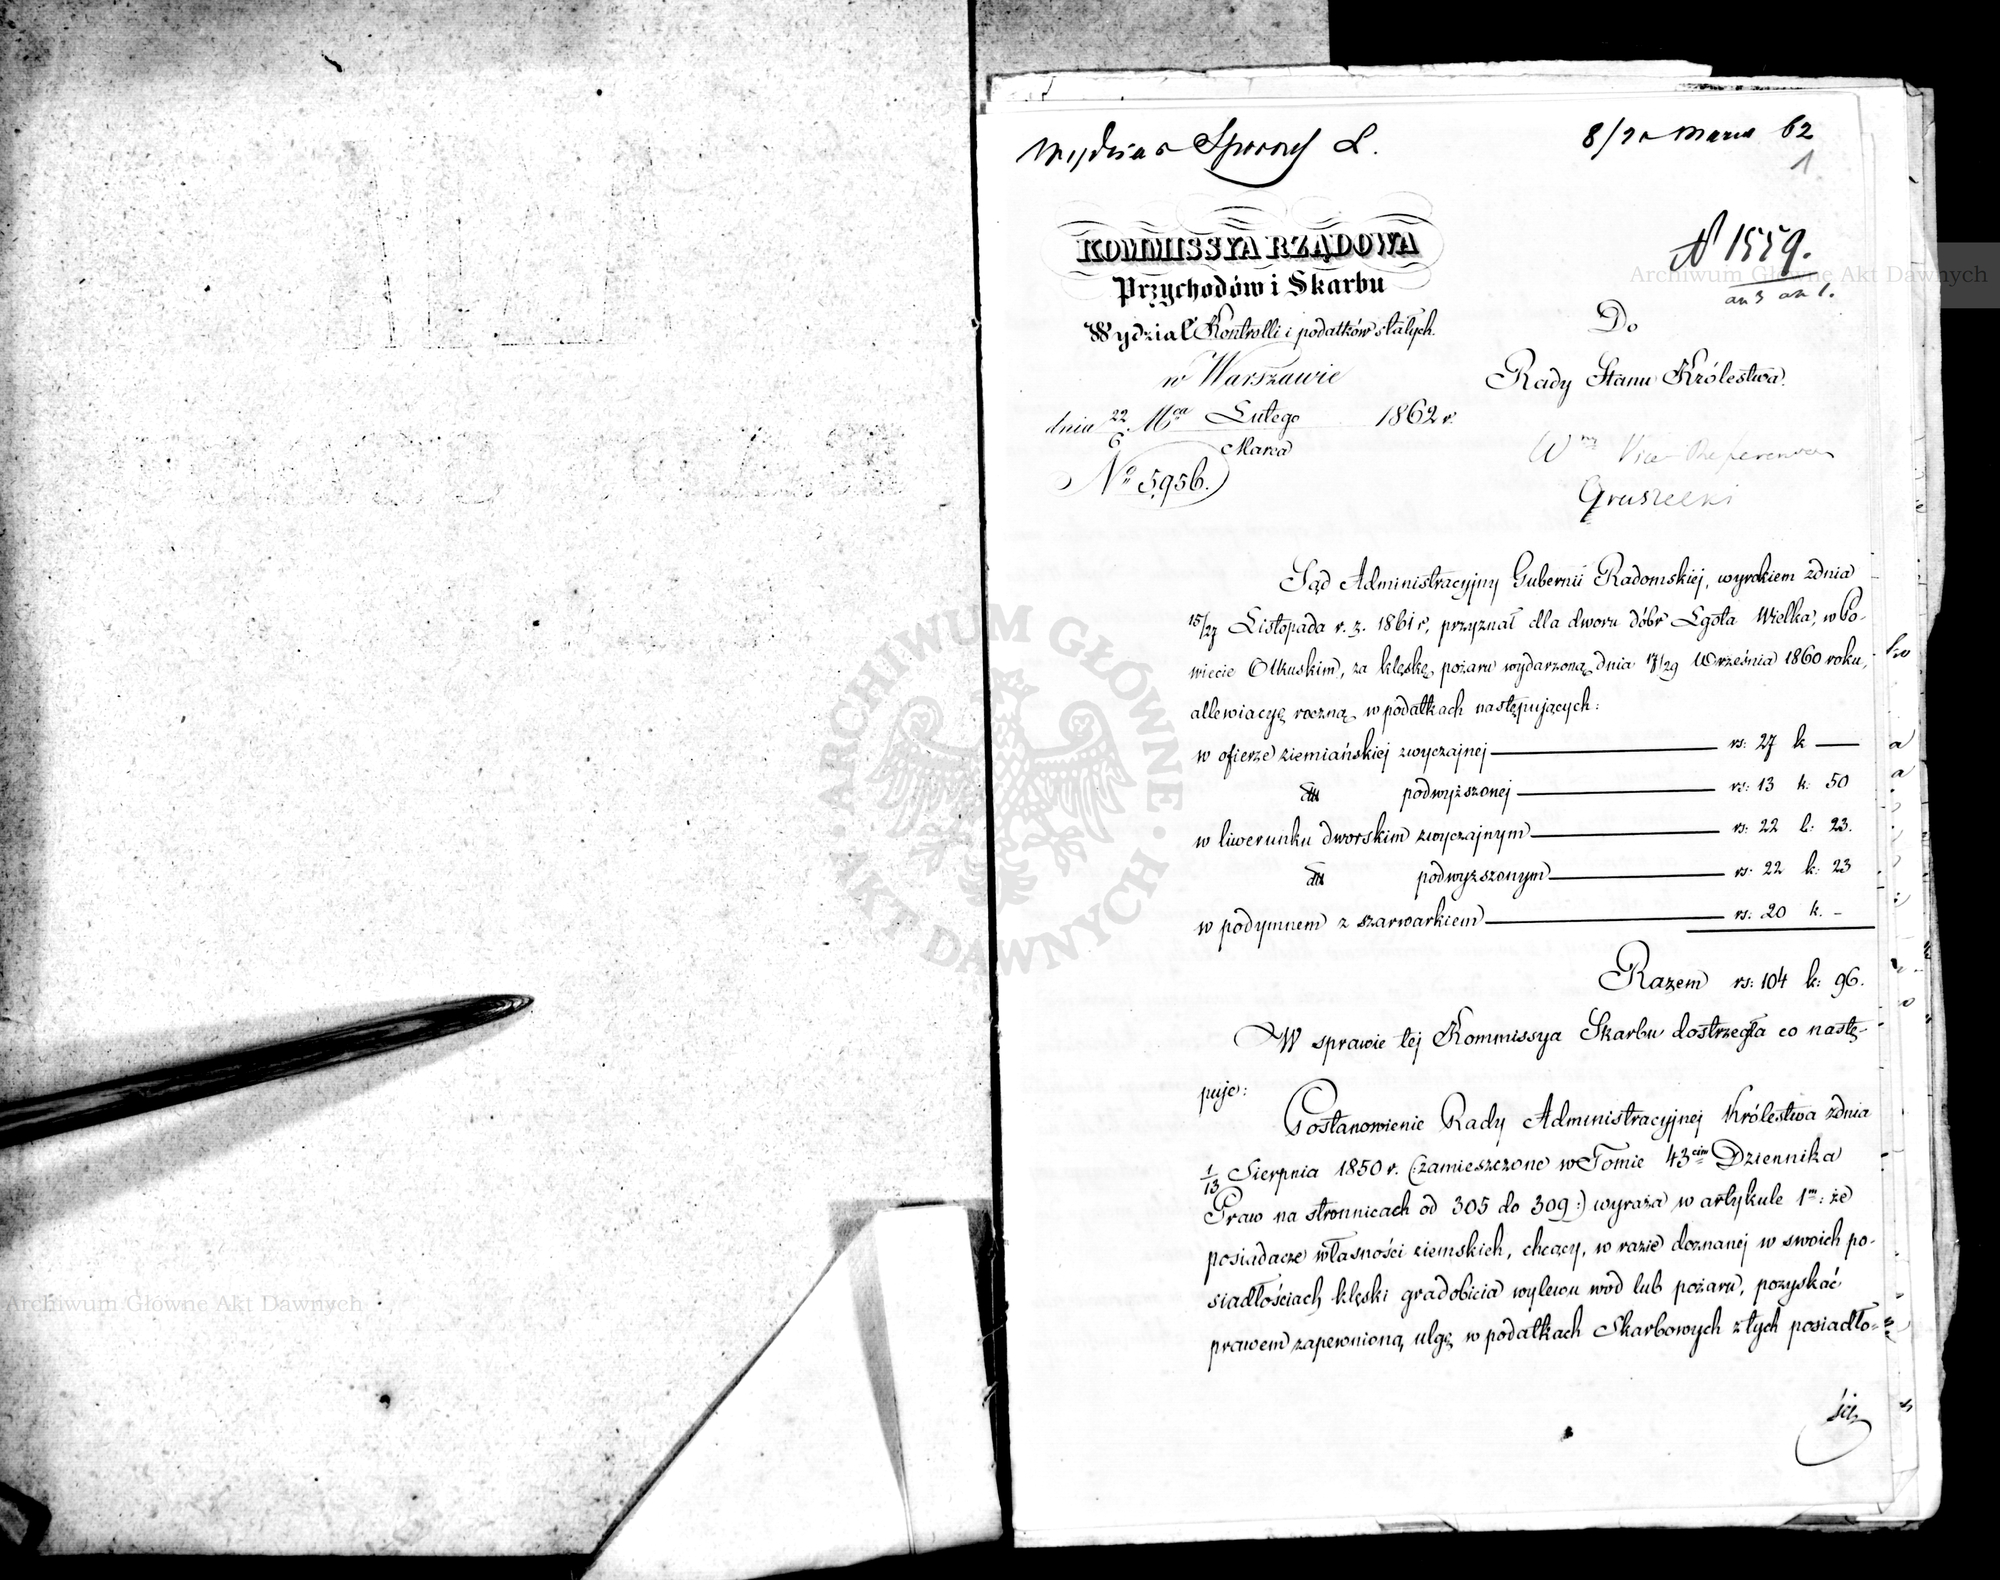 Wydział Sporny L.
8/20 Marca 62
1
KOMMISSYA RZĄDOWA
Przychodów i Skarbu
Wydział Kontrolli i podatków stałych.
w Warszawie
dnia 22/6 Mca Lutego/Marca 1862 r.
No 5956.
N 1559.
Do
Rady Stanu Królestwa.
Wny Vice Referendarz
Gruszecki
Sąd Administracyjny Gubernii Radomskiej, wyrokiem z dnia
15/27 Listopada r. z. 1861 r, przyznał dla dworu dóbr Lgota Wielka, w Po-
wiecie Olkuskim, za klęskę pożaru wydarzoną dnia 17/29 Września 1860 roku,
allewiacyę roczną w podatkach następujących:
w ofierze ziemiańskiej zwyczajnej — rs: 27 k —
dtto podwyższonej — rs: 13 k: 50
w liwerunku dworskim zwyczajnym — rs: 22 k: 23.
dtto podwyższonym — rs: 22 k: 23
w podymnem z szarwarkiem — rs: 20 k. -
Razem rs: 104 k: 96.
W sprawie tej Kommissya Skarbu dostrzegła co nastę-
puje:
Postanowienie Rady Administracyjnej Królestwa z dnia
1/13 Sierpnia 1850 r. (:zamieszczone w Tomie 43cim Dziennika
Praw na stronnicach od 305 do 309:) wyraża w artykule 1m: że
posiadacze własności ziemskich, chcący, w razie doznanej w swoich po-
siadłościach klęski gradobicia wylewu wód lub pożaru, pozyskać
prawem zapewnioną ulgę w podatkach Skarbowych z tych posiadło-
ści
Archiwum Główne Akt Dawnych
Archiwum Główne Akt Dawnych
ARCHIWUM GŁÓWNE · AKT DAWNYCH ·